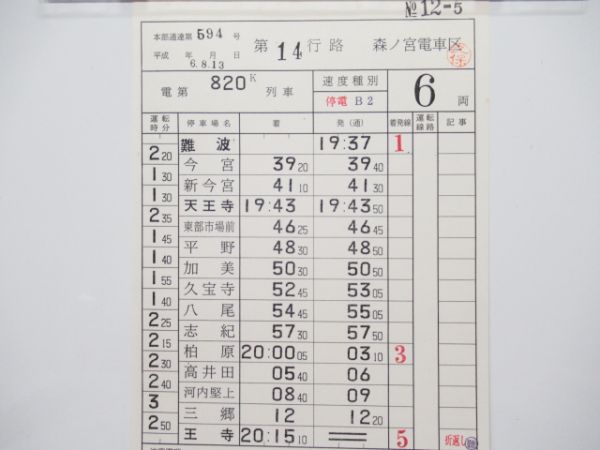 №12-5
本部通達第 594 号
平成 年 月 日
6.8.13
第 14 行路 森ノ宮電車区
電第 820K 列車
速度種別
停電 B2
6 両
運転時分 停車場名 着 発(通) 着発線 運転線路 記事
難波 19:37 1
2 20
今宮 39 20 39 40
1 30
新今宮 41 10 41 30
1 30
天王寺 19:43 19:43 50
2 35
東部市場前 46 25 46 45
1 45
平野 48 30 48 50
1 40
加美 50 30 50 50
1 55
久宝寺 52 45 53 05
1 40
八尾 54 45 55 05
2 25
志紀 57 30 57 50
2 15
柏原 20:00 05 03 10 3
2 30
高井田 05 40 06
2 40
河内堅上 08 40 09
3
三郷 12 12 20
2 50
王寺 20:15 10 5 折返し